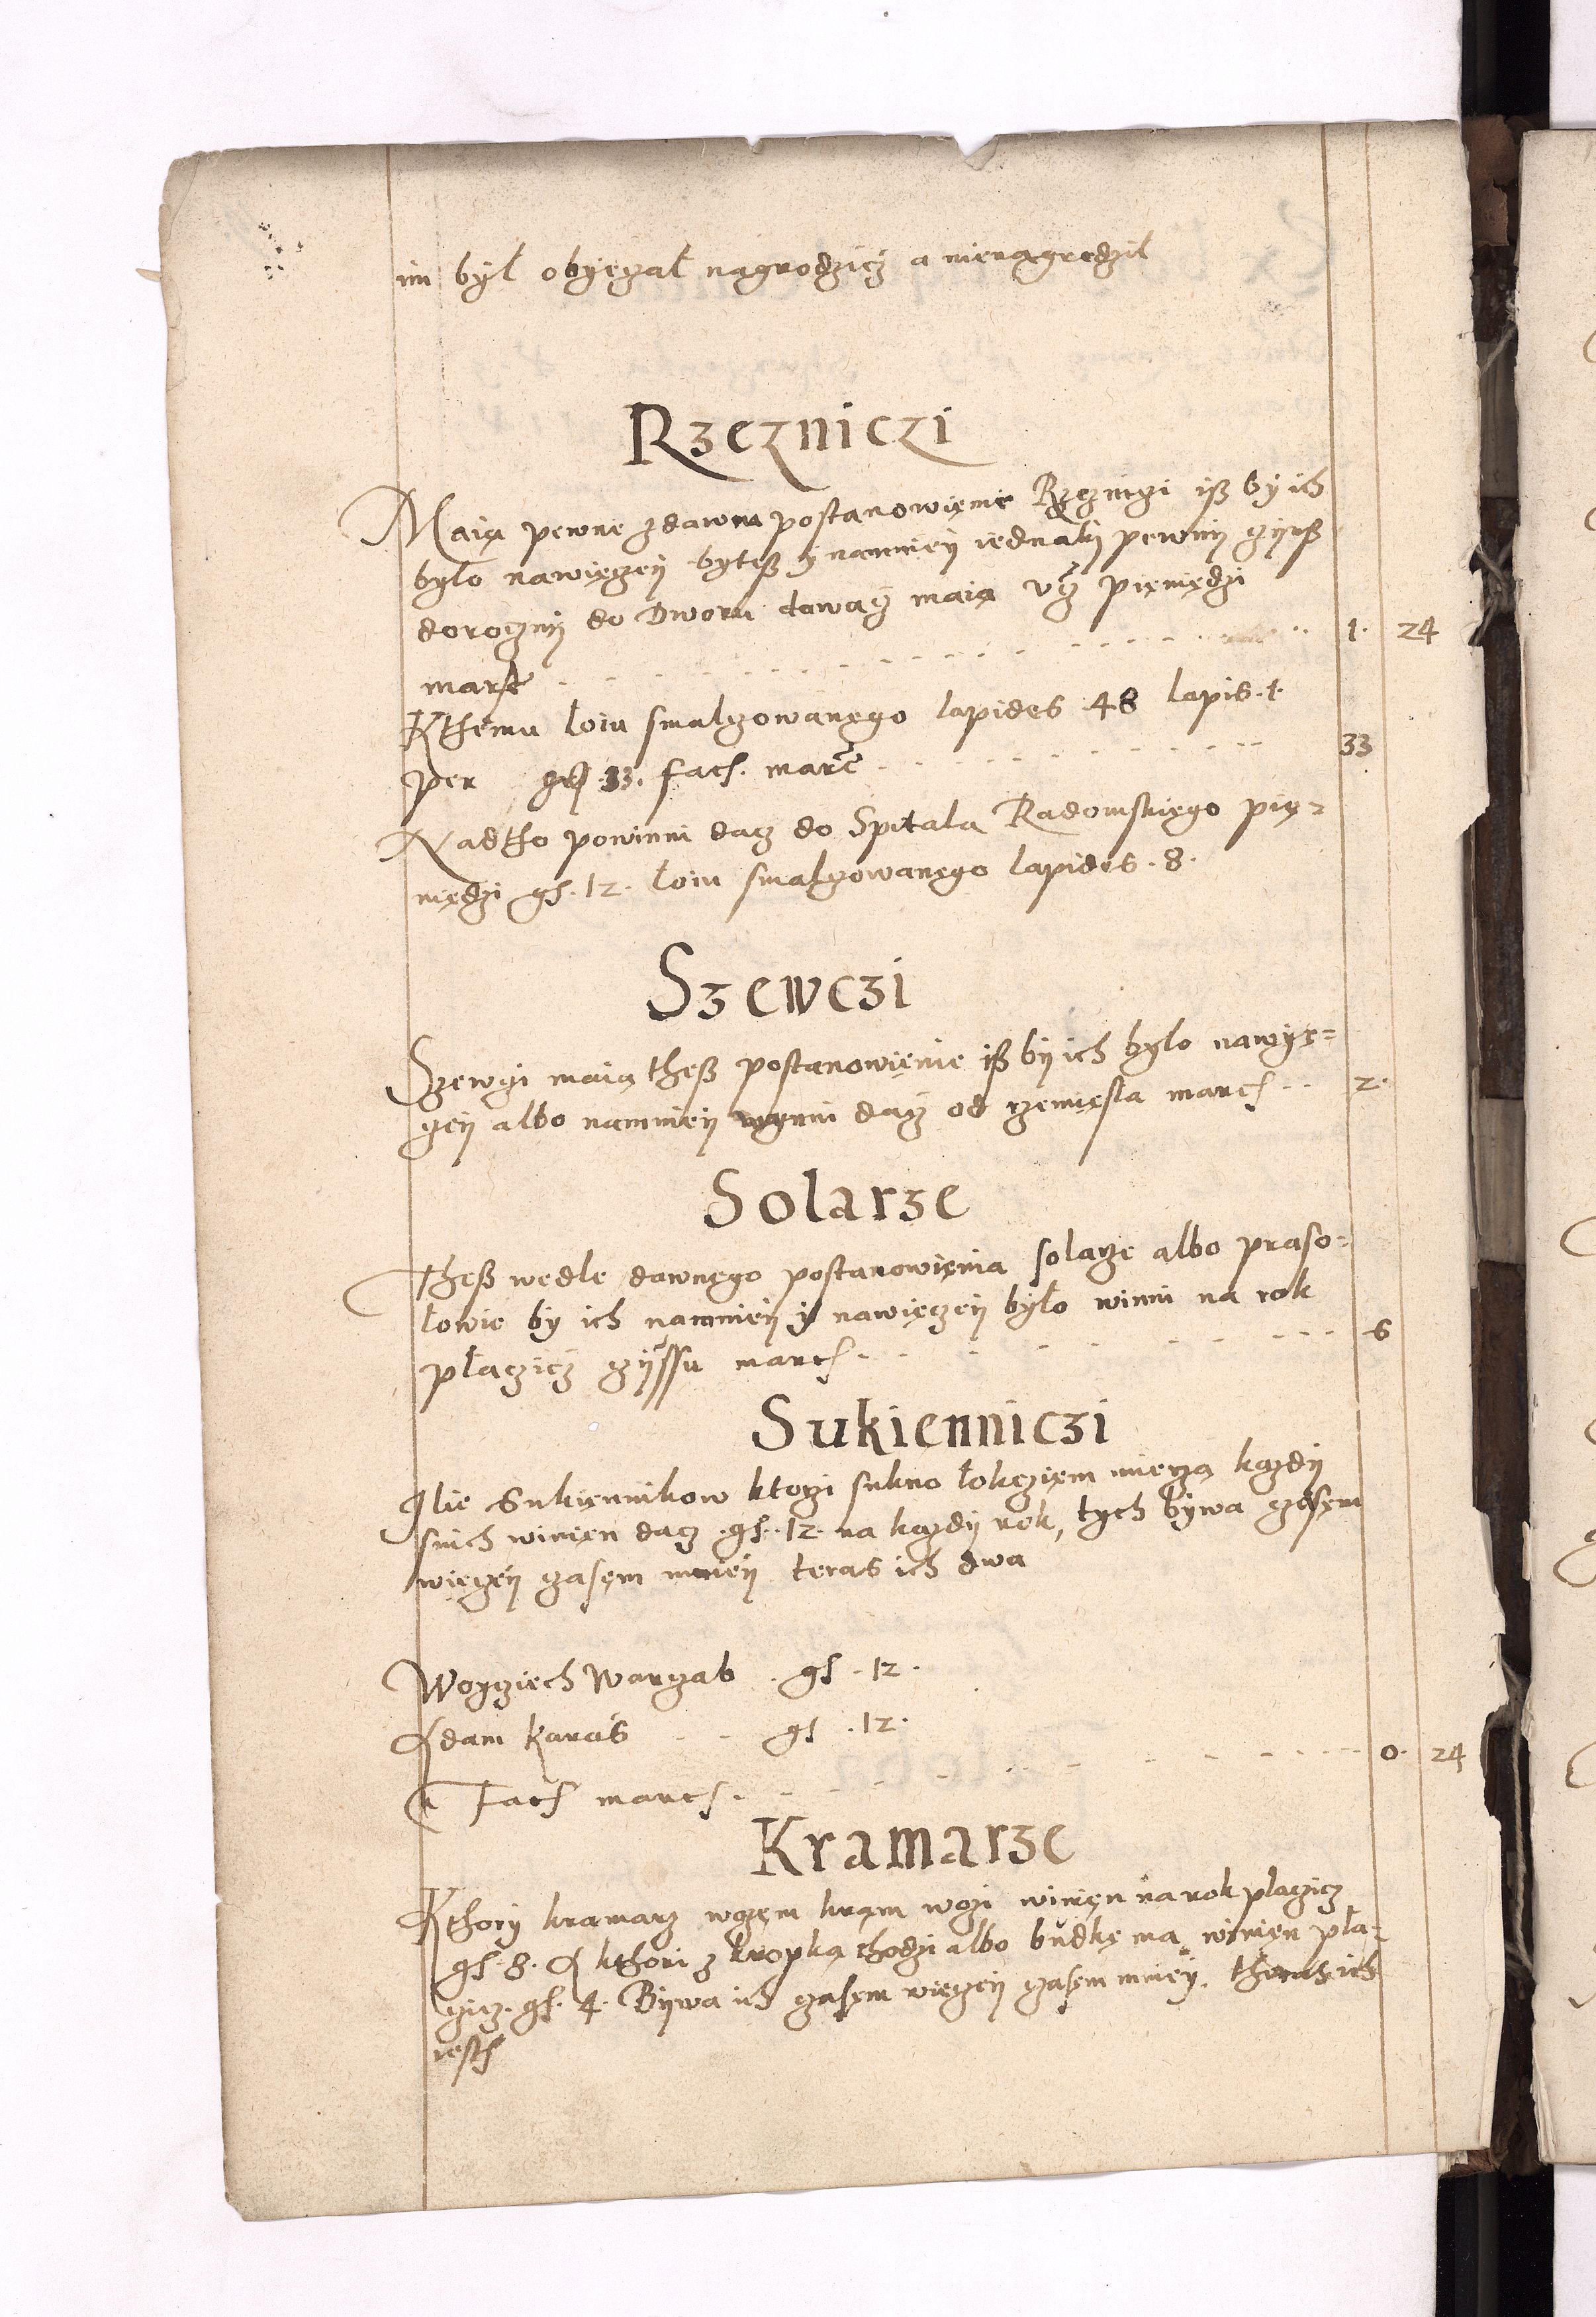 im był obyęczal nągrodzicz a nienagrodzil
Rzezniczi
Maią pewne zdawna postanowięnie Rzęzniczi iß by ich
było nawięczeÿ byteß y namnieÿ iednaki pewnÿ czÿnß
dorocznÿ do Dworu dawacz maią vcz pięniędzi
marc 1. 24
Kthemu loiu smalczowanęgo lapides 48 lapis .1.
per gs. 33. facs. marc 33
Nadtho powinni dacz do Spitala Radomskięgo pię=
niędzi gs. 12. loiu smalczowanęgo lapides .8.
Szewczi
Szewczi maią theß postanowięnie iß bÿ ich było nawÿę=
czeÿ albo namnieÿ wynni dacz od rzemięsla marcs 2.
Solarze
Theß wedle dawnęgo postanowięnia solarze albo praso=
łowie by ich namnieÿ y nawięczeÿ było winni na rok
płaczicz czÿnssu marcs. 6
Sukienniczi
Ilie Sukięnnikow ktorzi sukno łokczięm mierzą kazdÿ
snich winięn dacz .gs. 12. na kazdÿ rok, tych bÿwa czasęm
więczeÿ czasęm mnieÿ teras ich dwa
Woyczięch Warzab . gs . 12 .
Adam Karas gs . 12 .
Facs marcs . 0. 24
Kramarze
Kthorÿ kramarz wczęm kram wozi winięn na rok placzicz
gs. 8. A kthori z kropką chodzi albo budkę ma winięn pła=
czicz. gs. 4. Bÿwa ich czasęm więczeÿ czasęm mnieÿ. theras ich
iesth